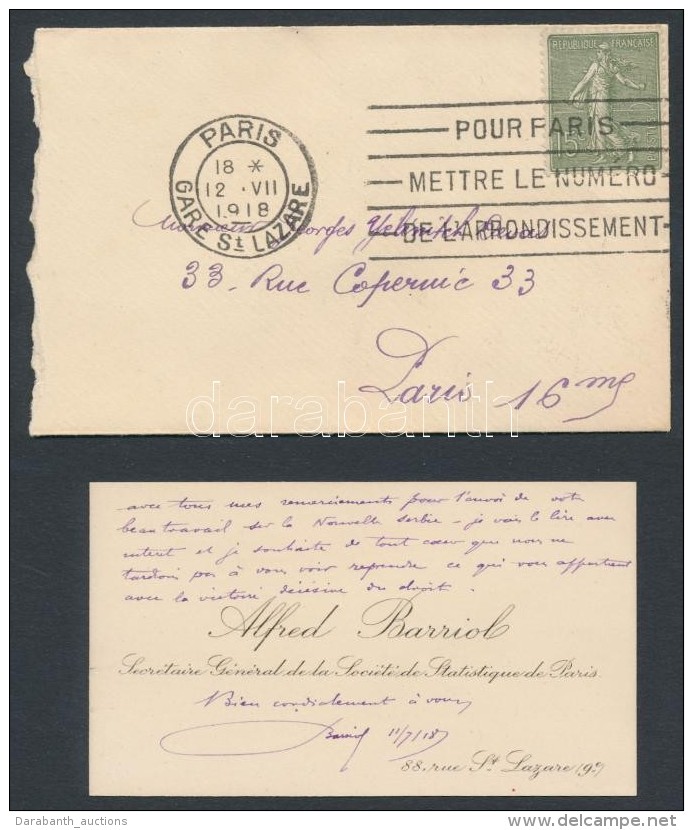 RÉPUBLIQUE FRANÇAISE
15
PARIS
18 *
12 · VII
1918
GARE St LAZARE
POUR PARIS
METTRE LE NUMÉRO
DE L'ARRONDISSEMENT
Monsieur Georges
33. Rue Copernic 33
Paris 16 me
darabanth
avec tous mes remerciements pour l'envoi de votre
beau travail sur la Nouvelle Serbie - je vais le lire avec
intérêt et je souhaite de tout cœur que nous ne
tardions pas à vous voir reprendre ce qui vous appartient
avec la victoire décisive du droit.
Alfred Barriol
Secrétaire Général de la Société de Statistique de Paris.
Bien cordialement à vous
Barriol 11/7/18
88, rue St Lazare (9e)
Darabanth_auctions
delcampe.net